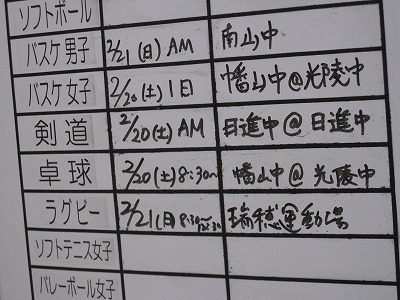 ソフトボール
バスケ男子 2/21(日)AM 南山中
バスケ女子 2/20(土)1日 幡山中@光陵中
剣道 2/20(土)AM 日進中@日進中
卓球 2/20(土)8:30～ 幡山中@光陵中
ラグビー 2/21(日)8:30～12:30 瑞穂運動場
ソフトテニス女子
バレーボール女子